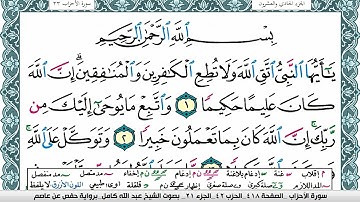 الجزء الحادي والعشرون
سورة الأحزاب ٣٣
بِسْمِ ٱللَّهِ ٱلرَّحْمَٰنِ ٱلرَّحِيمِ
يَٰٓأَيُّهَا ٱلنَّبِيُّ ٱتَّقِ ٱللَّهَ وَلَا تُطِعِ ٱلْكَٰفِرِينَ وَٱلْمُنَٰفِقِينَ ۗ إِنَّ ٱللَّهَ
كَانَ عَلِيمًا حَكِيمًا ١ وَٱتَّبِعْ مَا يُوحَىٰٓ إِلَيْكَ مِن
رَّبِّكَ ۚ إِنَّ ٱللَّهَ كَانَ بِمَا تَعْمَلُونَ خَبِيرًا ٢ وَتَوَكَّلْ عَلَى ٱللَّهِ ۚ
سورة الأحزاب الصفحة ٤١٨ الحزب ٤٢ الجزء ٢١ بصوت الشيخ عبد الله كامل برواية حفص عن عاصم